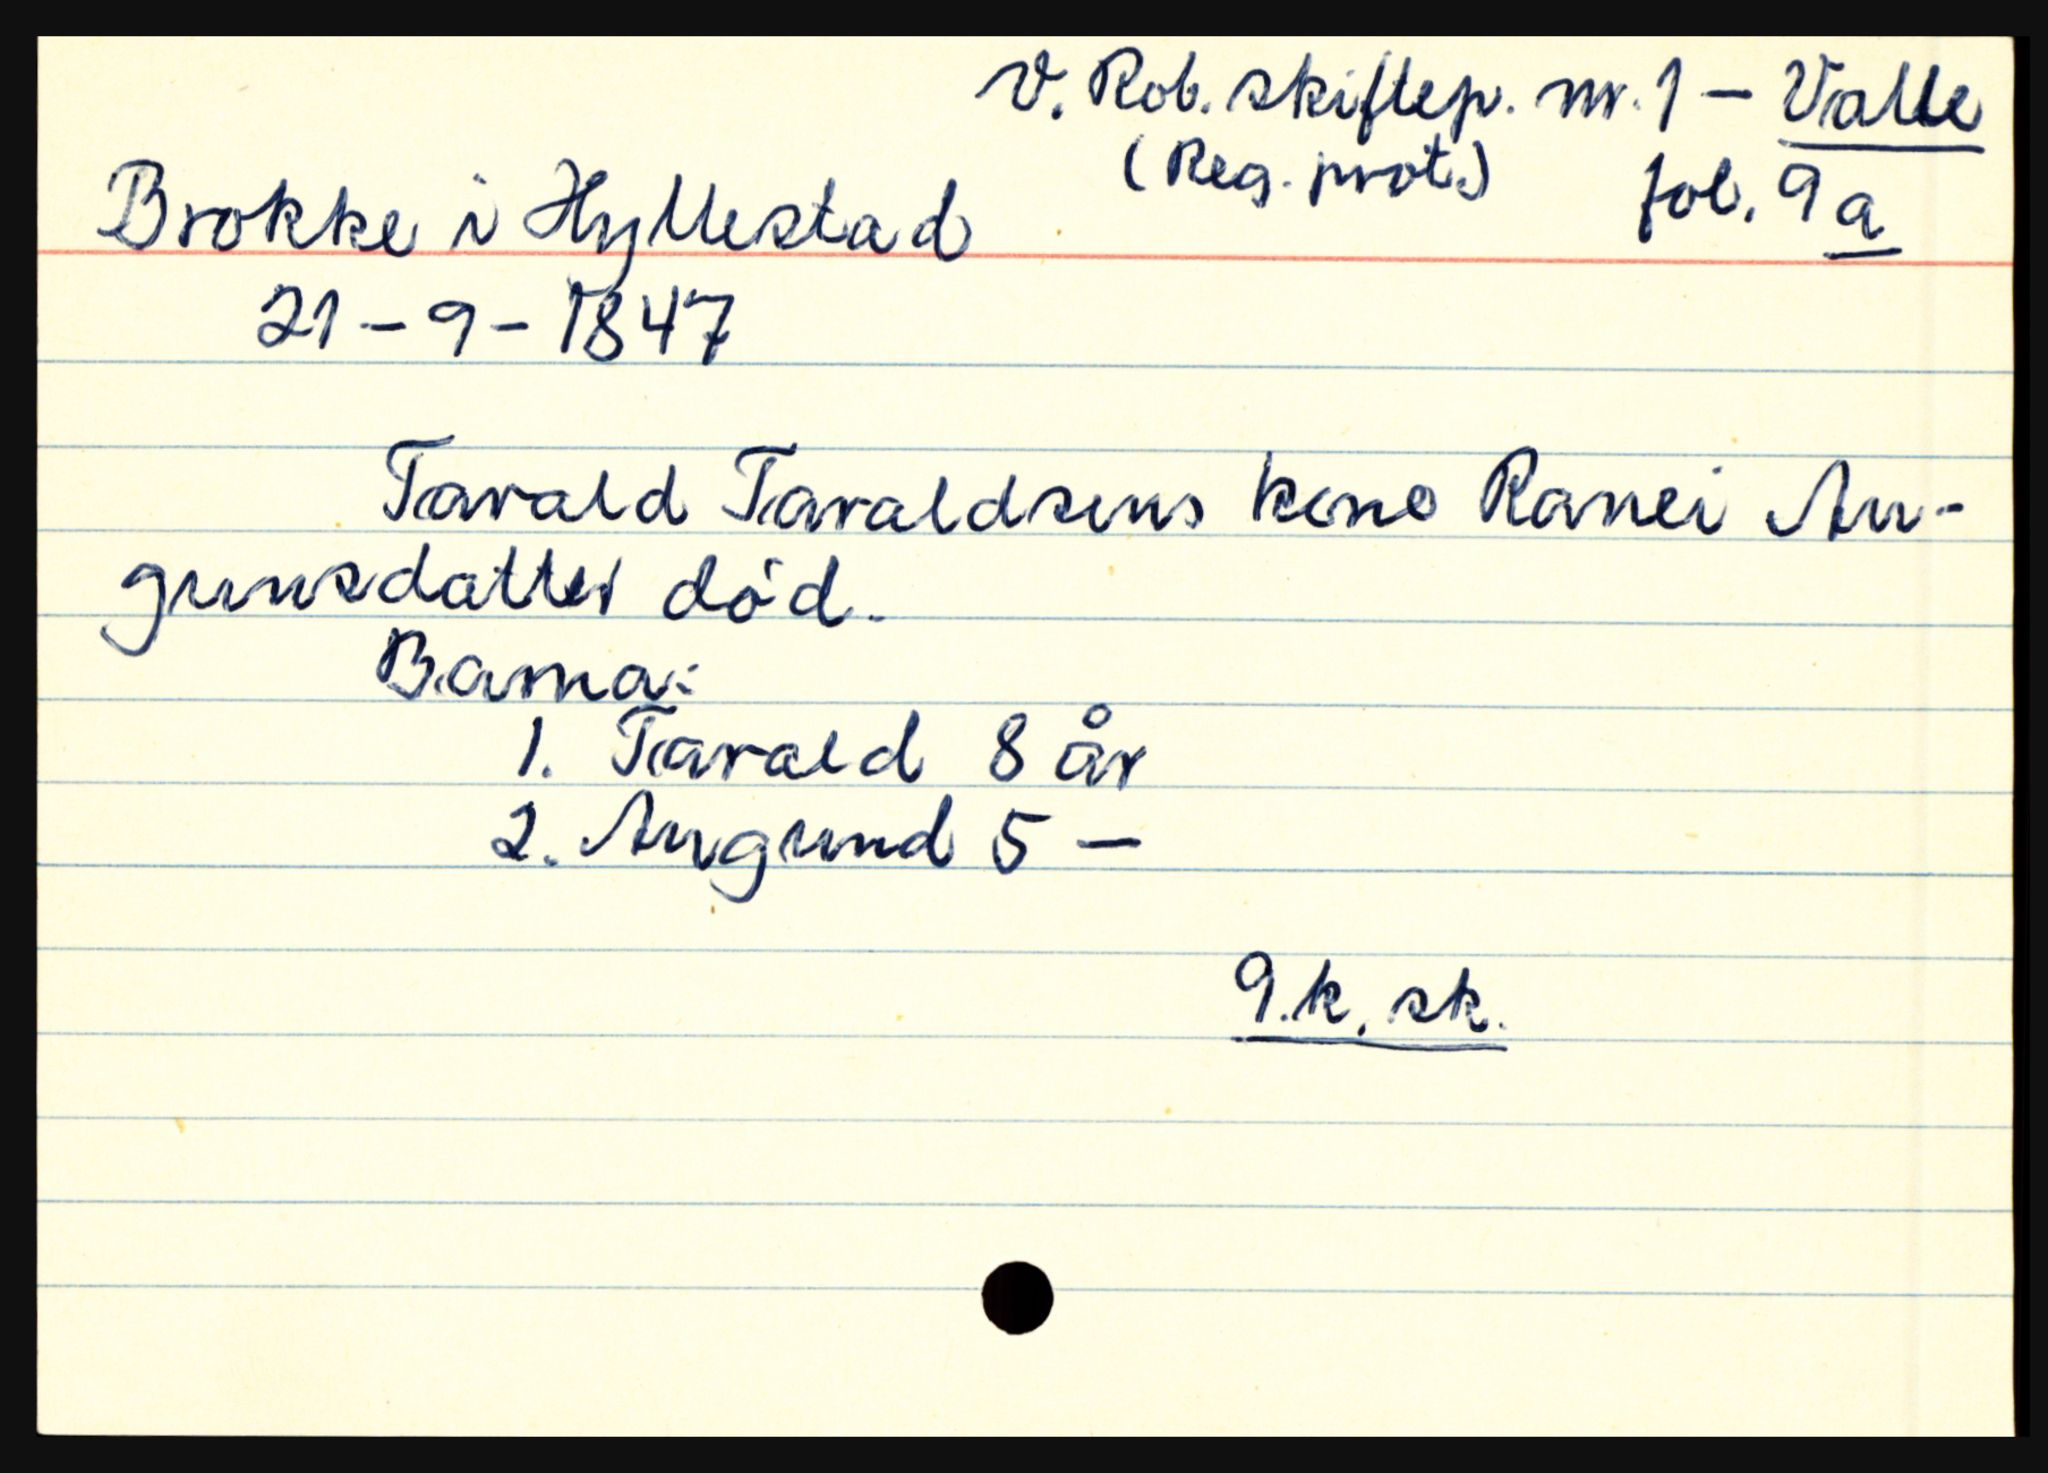 V. Rob. skiftep. nr. 1 - Valle
(Reg. prot.) fol. 9a
Brokke i Hyllestad
21-9-1847
Tarald Taraldsens kone Ranei Au-
gunsdatter død.
Barna:
1. Tarald 8 år
2. Augund 5 -
9.k. sk.